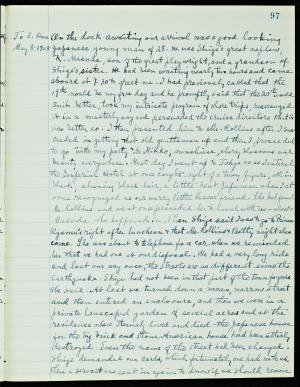 97
To E. Hoa On the dock awaiting our arrival was a good looking
May 8-1928 Japanese young man of 28. He was Shige's great nephew,
K. Masuda, son of the great playwright, and a grandson of
Shige's sister. He had been waiting nearly two hours and came
aboard at 7:30 to greet me. I had previously cabled that the
19th would be my free day and he promptly said that the 20th would
suit better, took my intricate program of shore trips, rearranged
it in a masterly way and persuaded the cruise directors that it
was better so. I then presented him to Mrs. Rollins after I suc-
ceeded in getting that old gentleman up and then I forced her
to go with my party to Nikko, sunshine, cherry blossoms and
beauty everywhere. Next day I went up to Tokyo and as I entered
the Imperial Hotel at one caught sight of a tiny figure, all in
black, showing black hair, a little bent Japanese woman and at
once recognized as our merry little housed friend. The hubpunt
Mr. Rollins and we at once planned to lunch with us and with
Masuda. She happened in. When Shige said I was to go to Prince
Uyeno's right after luncheon & that Mr. Rollins & Betty might also
come. She was about to telephone for a car when we reminded
her that we had one at our disposal. We had a very long ride
and lost our way once, the streets are so different since the
Earthquake. Shige had not been in that part of the town for years
she said. At last we turned down a mean, narrow street
and then entered an enclosure, and then we were in a
private landscaped garden of several acres and at the
residence where Stematz lived and died - the Japanese house
for the big brick and stone American house had been utterly
destroyed. Even the name of the street had been changed.
Shige demanded our cards, which fortunately, we had with us
then a servant was sent in again to know if we should remove